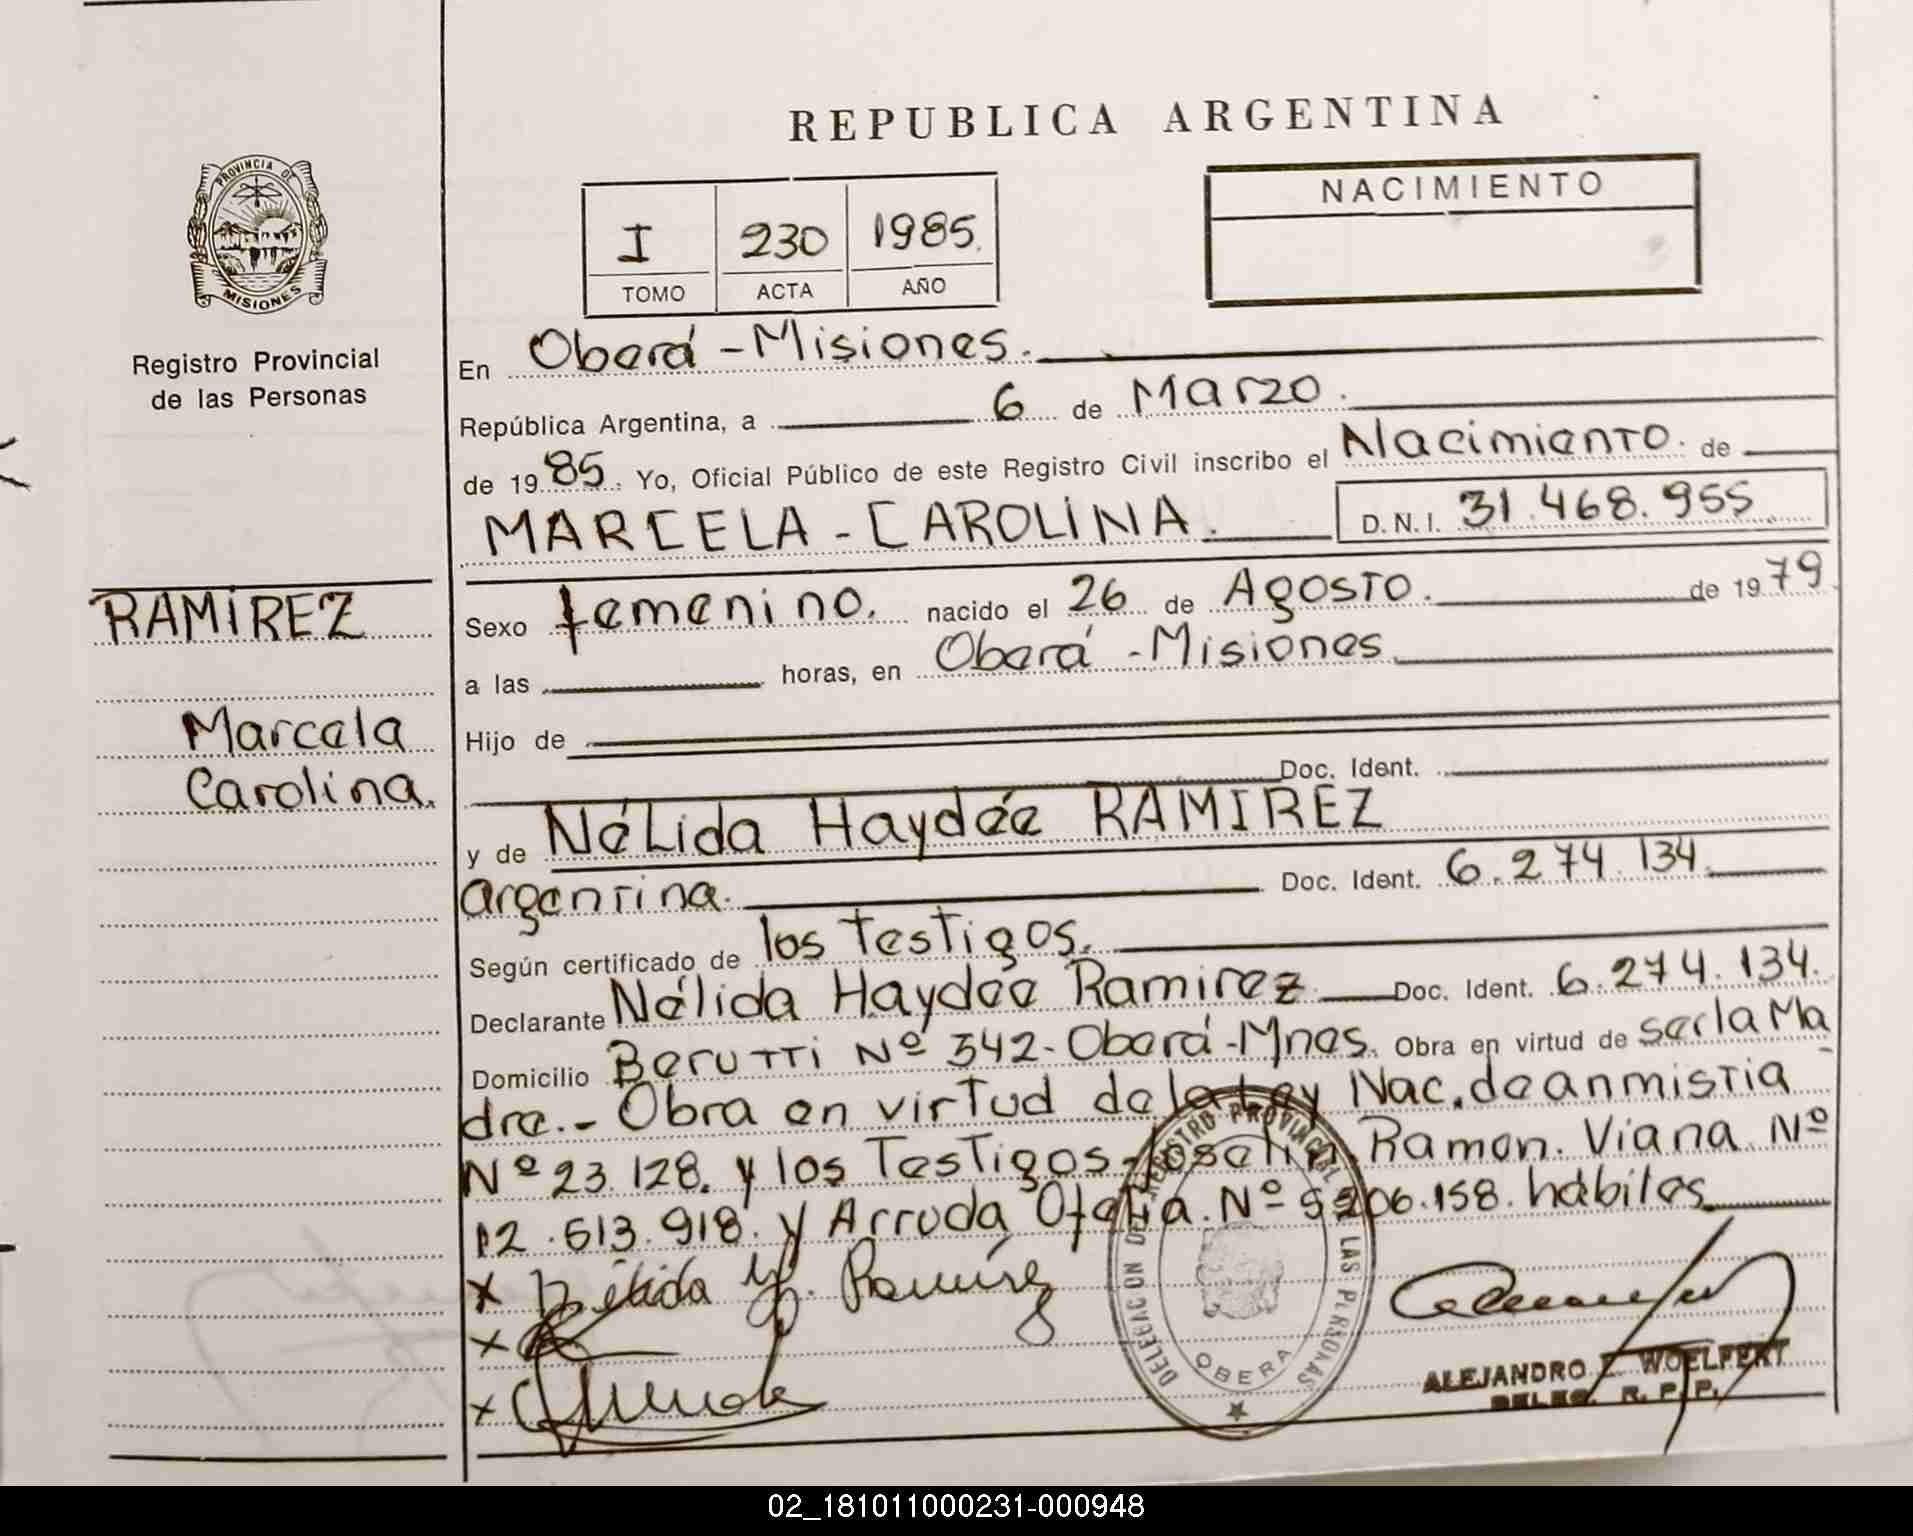 REPUBLICA ARGENTINA
PROVINCIA DE
MISIONES
Registro Provincial
de las Personas
I 230 1985.
TOMO ACTA AÑO
NACIMIENTO
En Oberá - Misiones.
República Argentina, a 6 de Marzo.
de 1985. Yo, Oficial Público de este Registro Civil inscribo el Nacimiento. de
MARCELA - CAROLINA. D.N.I. 31.468.955
RAMIREZ
Marcela
Carolina.
Sexo femenino. nacido el 26 de Agosto. de 1979
a las horas, en Oberá - Misiones
Hijo de
Doc. Ident.
y de Nélida Haydée RAMIREZ
argentina. Doc. Ident. 6.274.134.
Según certificado de los testigos.
Declarante Nélida Haydée Ramirez Doc. Ident. 6.274.134.
Domicilio Berutti Nº 342- Oberá-Mnes. Obra en virtud de ser la Ma
dre.- Obra en virtud de la Ley Nac. de anmistia
Nº 23.128. y los Testigos- Ramon. Viana Nº
12.613.918. y Arruda Ofelia. Nº 5206.158. hábiles
x Nélida H. Ramírez
x
x
DELEGACION DEL REGISTRO PROVINCIAL DE LAS PERSONAS
OBERA
ALEJANDRO E. WOELFERT
DELEG. R. P. P.
02_181011000231-000948